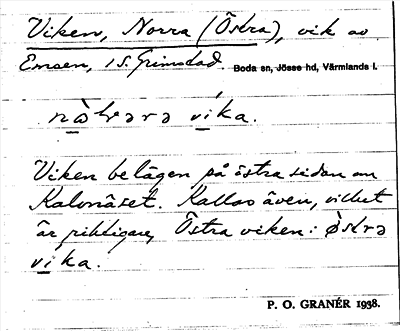 Viken, Norra (Östra), vik av
Emsen, i S. Grimstad. Boda sn, Jösse hd, Värmlands l.
nòlrərə víka.
Viken belägen på östra sidan om
Kalvnäset. Kallas även, vilket
är riktigare, Östra viken: òstrə
víka.
P. O. GRANÉR 1938.